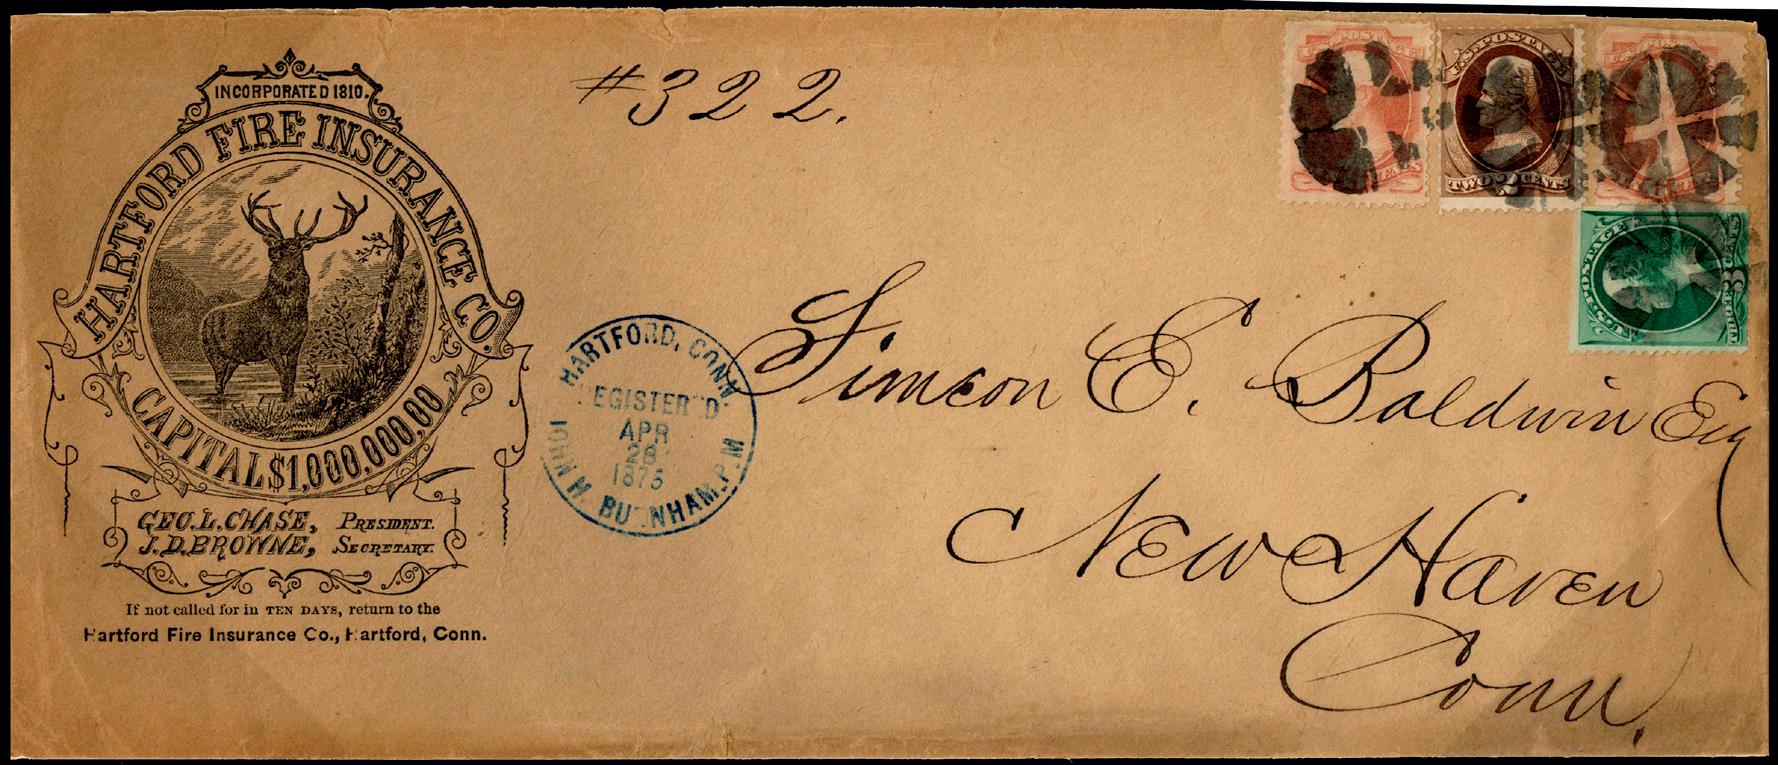 INCORPORATED 1810.
HARTFORD FIRE INSURANCE CO.
CAPITAL $1,000,000,00
GEO. L. CHASE, PRESIDENT.
J. D. BROWNE, SECRETARY.
If not called for in TEN DAYS, return to the
Hartford Fire Insurance Co., Hartford, Conn.
#322.
HARTFORD, CONN
REGISTERED
APR
28
1875
JOHN H. BURNHAM, P.M
U.S. POSTAGE
TWO 2 CENTS
U.S. POSTAGE
THREE 3 CENTS
Simeon E. Baldwin Esq
New Haven
Conn.